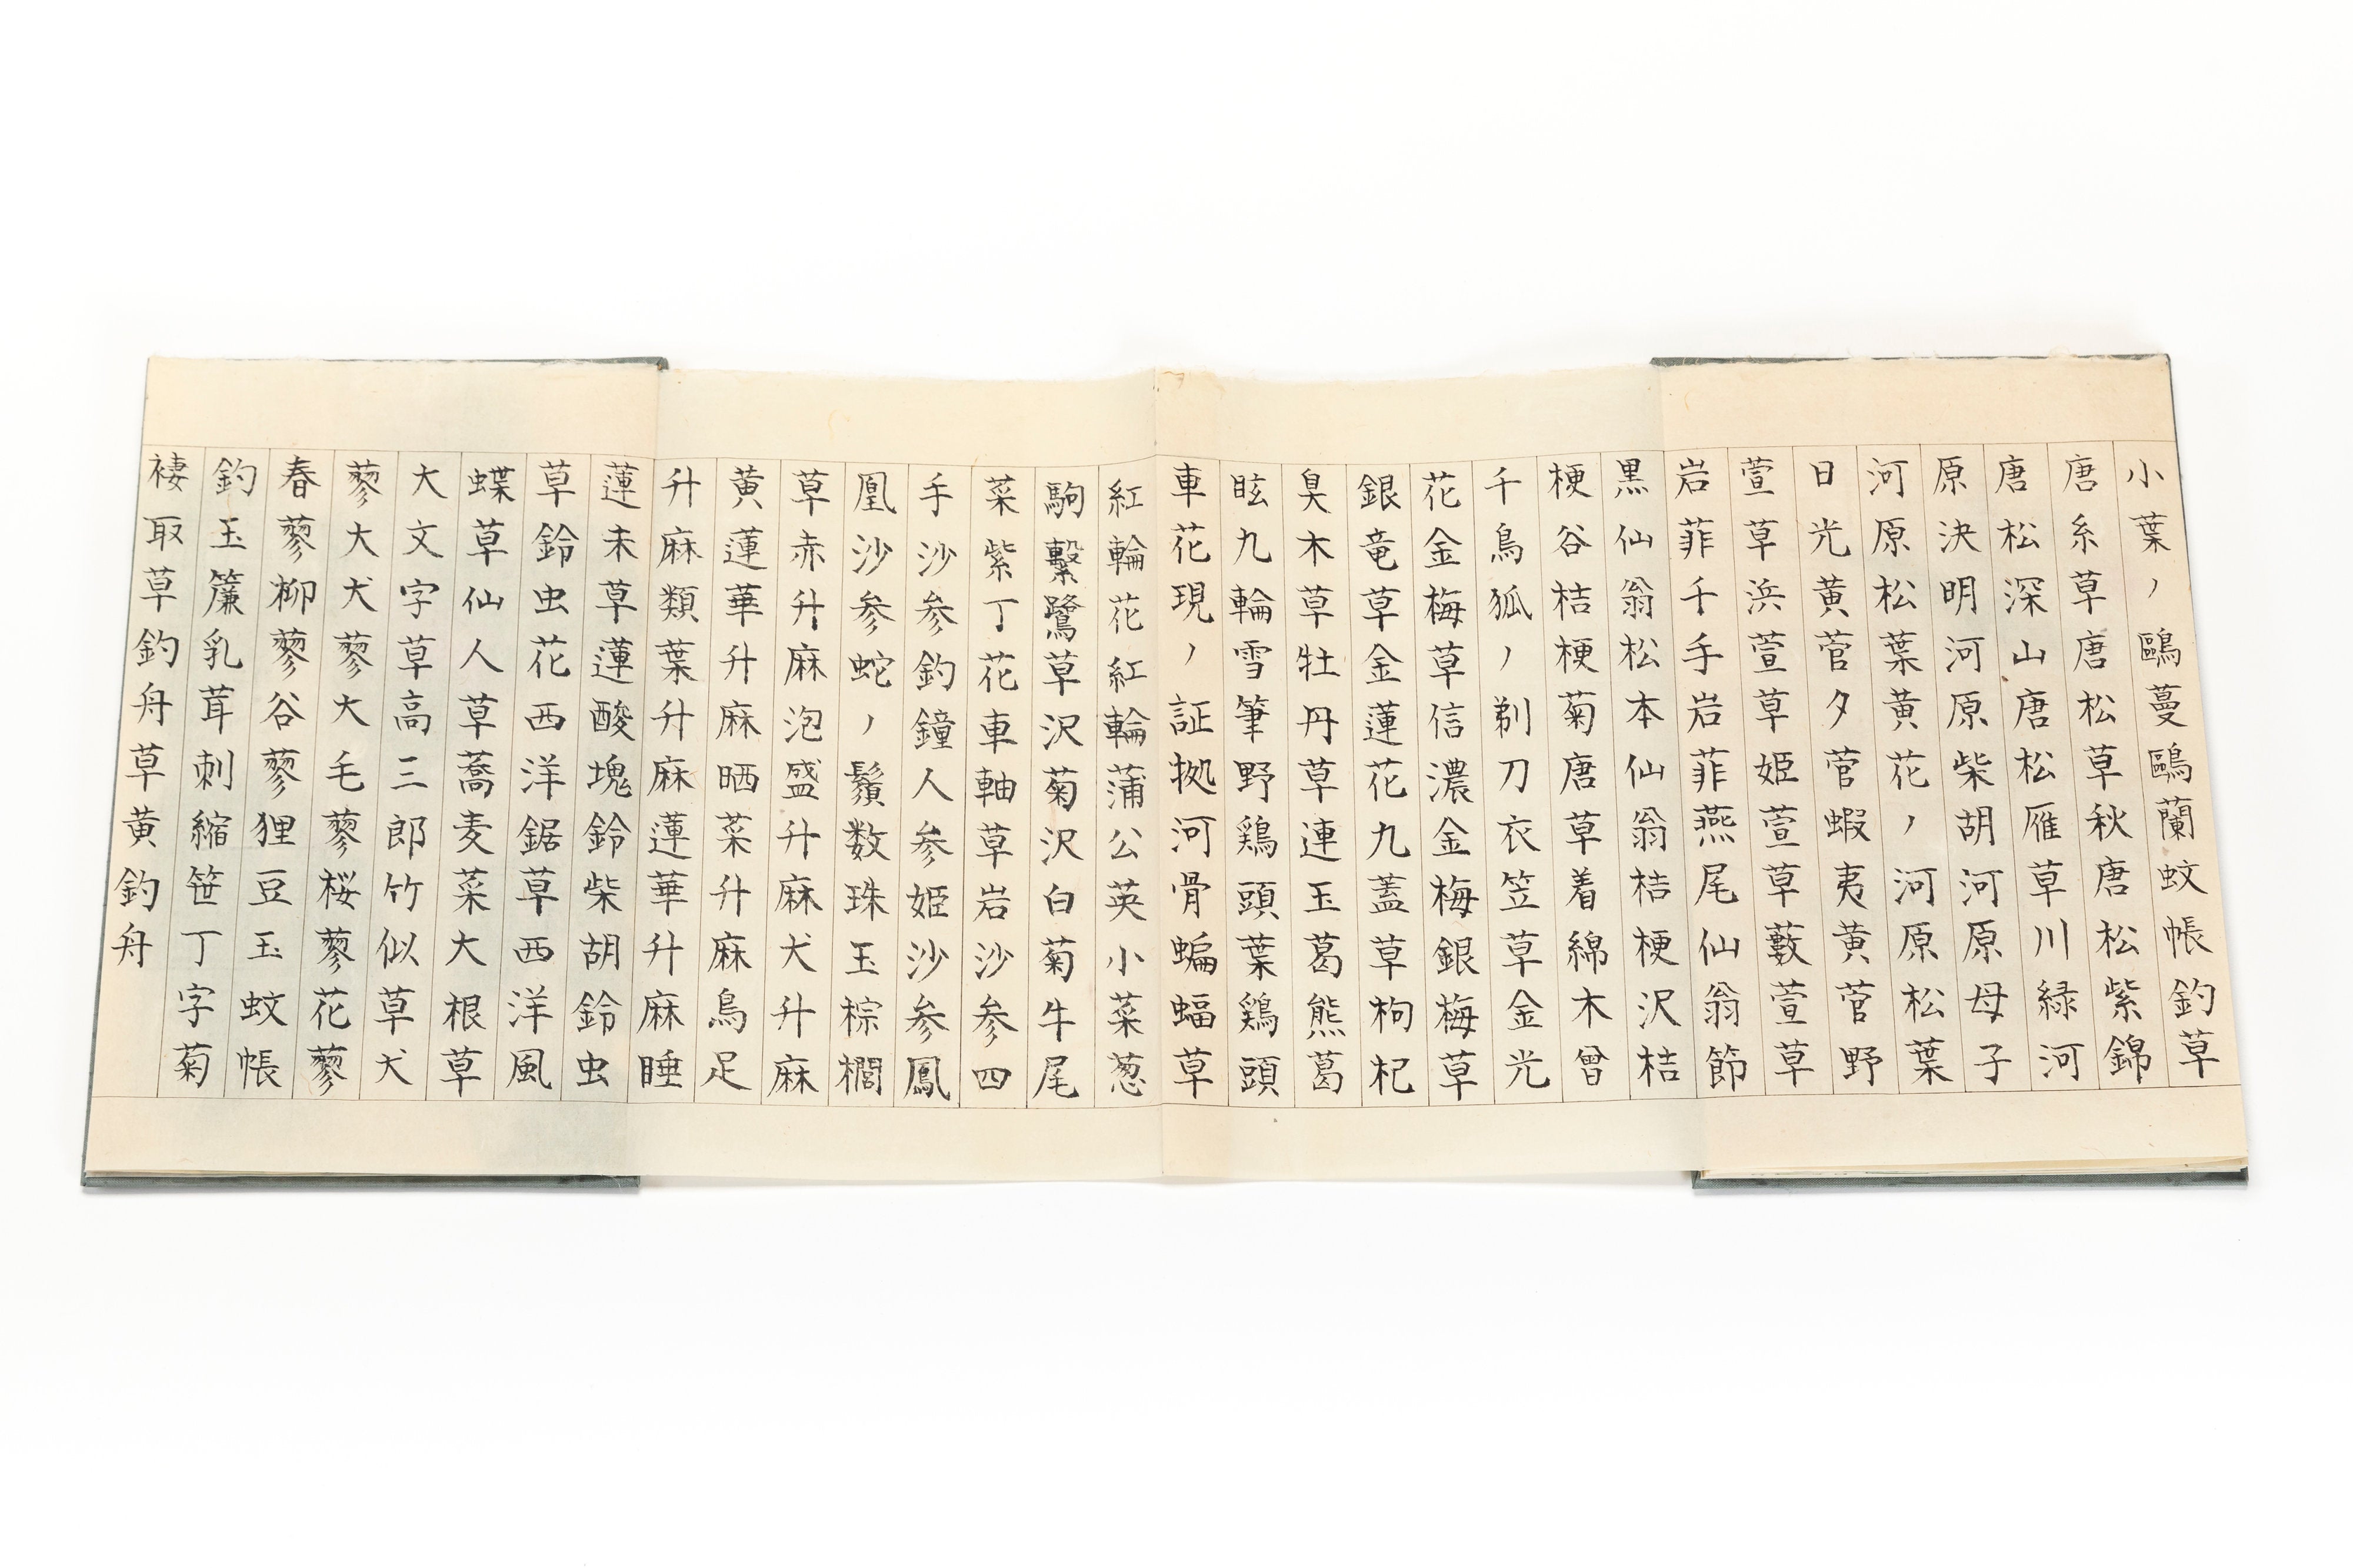 小葉ノ鷗蔓鷗蘭蚊帳釣草
唐糸草唐松草秋唐松紫錦
唐松深山唐松雁草川緑河
原決明河原柴胡河原母子
河原松葉黄花ノ河原松葉
日光黄菅夕菅蝦夷黄菅野
萱草浜萱草姫萱草藪萱草
岩菲千手岩菲燕尾仙翁節
黒仙翁松本仙翁桔梗沢桔
梗谷桔梗菊唐草着綿木曾
千鳥狐ノ剃刀衣笠草金光
花金梅草信濃金梅銀梅草
銀竜草金蓮花九蓋草枸杞
臭木草牡丹草連玉葛熊葛
眩九輪雪筆野鶏頭葉鶏頭
車花現ノ証拠河骨蝙蝠草
紅輪花紅輪蒲公英小菜葱
駒繫鷺草沢菊沢白菊牛尾
菜紫丁花車軸草岩沙参四
手沙参釣鐘人参姫沙参鳳
凰沙参蛇ノ鬚数珠玉棕櫚
草赤升麻泡盛升麻犬升麻
黄蓮華升麻晒菜升麻鳥足
升麻類葉升麻蓮華升麻睡
蓮未草蓮酸塊鈴柴胡鈴虫
草鈴虫花西洋鋸草西洋風
蝶草仙人草蕎麦菜大根草
大文字草高三郎竹似草犬
蓼大犬蓼大毛蓼桜蓼花蓼
春蓼柳蓼谷蓼狸豆玉蚊帳
釣玉簾乳茸刺縮笹丁字菊
褄取草釣舟草黄釣舟